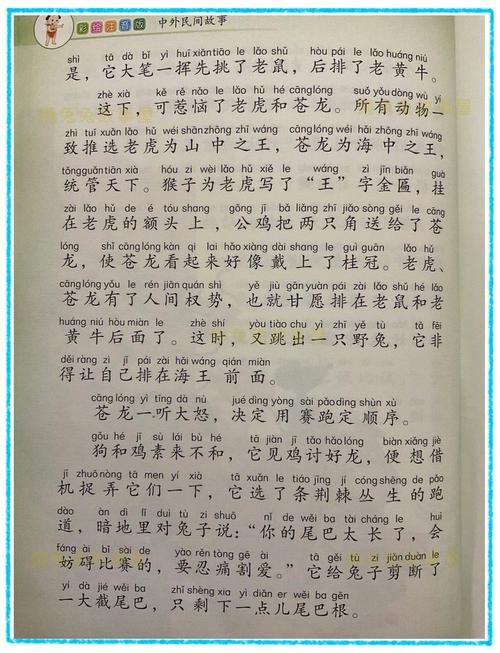 彩绘注音版 中外民间故事
shì tā dà bǐ yì huī xiān tiāo le lǎo shǔ hòu pái le lǎo huáng niú
是，它大笔一挥先挑了老鼠，后排了老黄牛。
zhè xià kě rě nǎo le lǎo hǔ hé cāng lóng suǒ yǒu dòng wù yí
这下，可惹恼了老虎和苍龙。所有动物一
zhì tuī xuǎn lǎo hǔ wéi shān zhōng zhī wáng cāng lóng wéi hǎi zhōng zhī wáng
致推选老虎为山中之王，苍龙为海中之王，
tǒng guǎn tiān xià hóu zi wèi lǎo hǔ xiě le wáng zì jīn biǎn guà
统管天下。猴子为老虎写了“王”字金匾，挂
zài lǎo hǔ de é tóu shang gōng jī bǎ liǎng zhī jiǎo sòng gěi le cāng
在老虎的额头上，公鸡把两只角送给了苍
lóng shǐ cāng lóng kàn qi lai hǎo xiàng dài shang le guì guān lǎo hǔ
龙，使苍龙看起来好像戴上了桂冠。老虎、
cāng lóng yǒu le rén jiān quán shì yě jiù gān yuàn pái zài lǎo shǔ hé lǎo
苍龙有了人间权势，也就甘愿排在老鼠和老
huáng niú hòu miàn le zhè shí yòu tiào chu yì zhī yě tù tā fēi
黄牛后面了。这时，又跳出一只野兔，它非
děi ràng zì jǐ pái zài hǎi wáng qián miàn
得让自己排在海王前面。
cāng lóng yì tīng dà nù jué dìng yòng sài pǎo dìng shùn xù
苍龙一听大怒，决定用赛跑定顺序。
gǒu hé jī sù lái bù hé tā jiàn jī tǎo hǎo lóng biàn xiǎng jiè
狗和鸡素来不和，它见鸡讨好龙，便想借
jī zhuō nòng tā men yí xià tā xuǎn le tiáo jīng jí cóng shēng de pǎo
机捉弄它们一下，它选了条荆棘丛生的跑
dào àn dì li duì tù zi shuō nǐ de wěi ba tài cháng le huì
道，暗地里对兔子说：“你的尾巴太长了，会
fáng ài bǐ sài de yào rěn tòng gē ài tā gěi tù zi jiǎn duàn le
妨碍比赛的，要忍痛割爱。”它给兔子剪断了
yí dà jié wěi ba zhǐ shèng xia yì diǎn er wěi ba gēn
一大截尾巴，只剩下一点儿尾巴根。